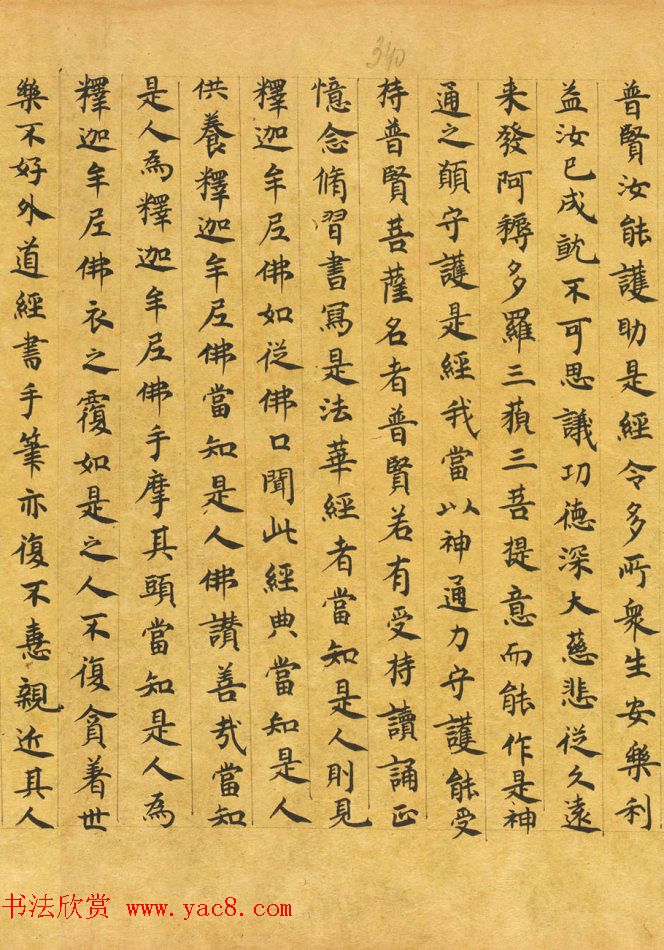 340
普賢汝能護助是經令多所衆生安樂利
益汝已成就不可思議功德深大慈悲從久遠
来發阿耨多羅三藐三菩提意而能作是神
通之願守護是經我當以神通力守護能受
持普賢菩薩名者普賢若有受持讀誦正
憶念脩習書寫是法華經者當知是人則見
釋迦牟尼佛如從佛口聞此經典當知是人
供養釋迦牟尼佛當知是人佛讚善哉當知
是人為釋迦牟尼佛手摩其頭當知是人為
釋迦牟尼佛衣之覆如是之人不復貪著世
樂不好外道經書手筆亦復不憙親近其人
书法欣赏 www.yac8.com